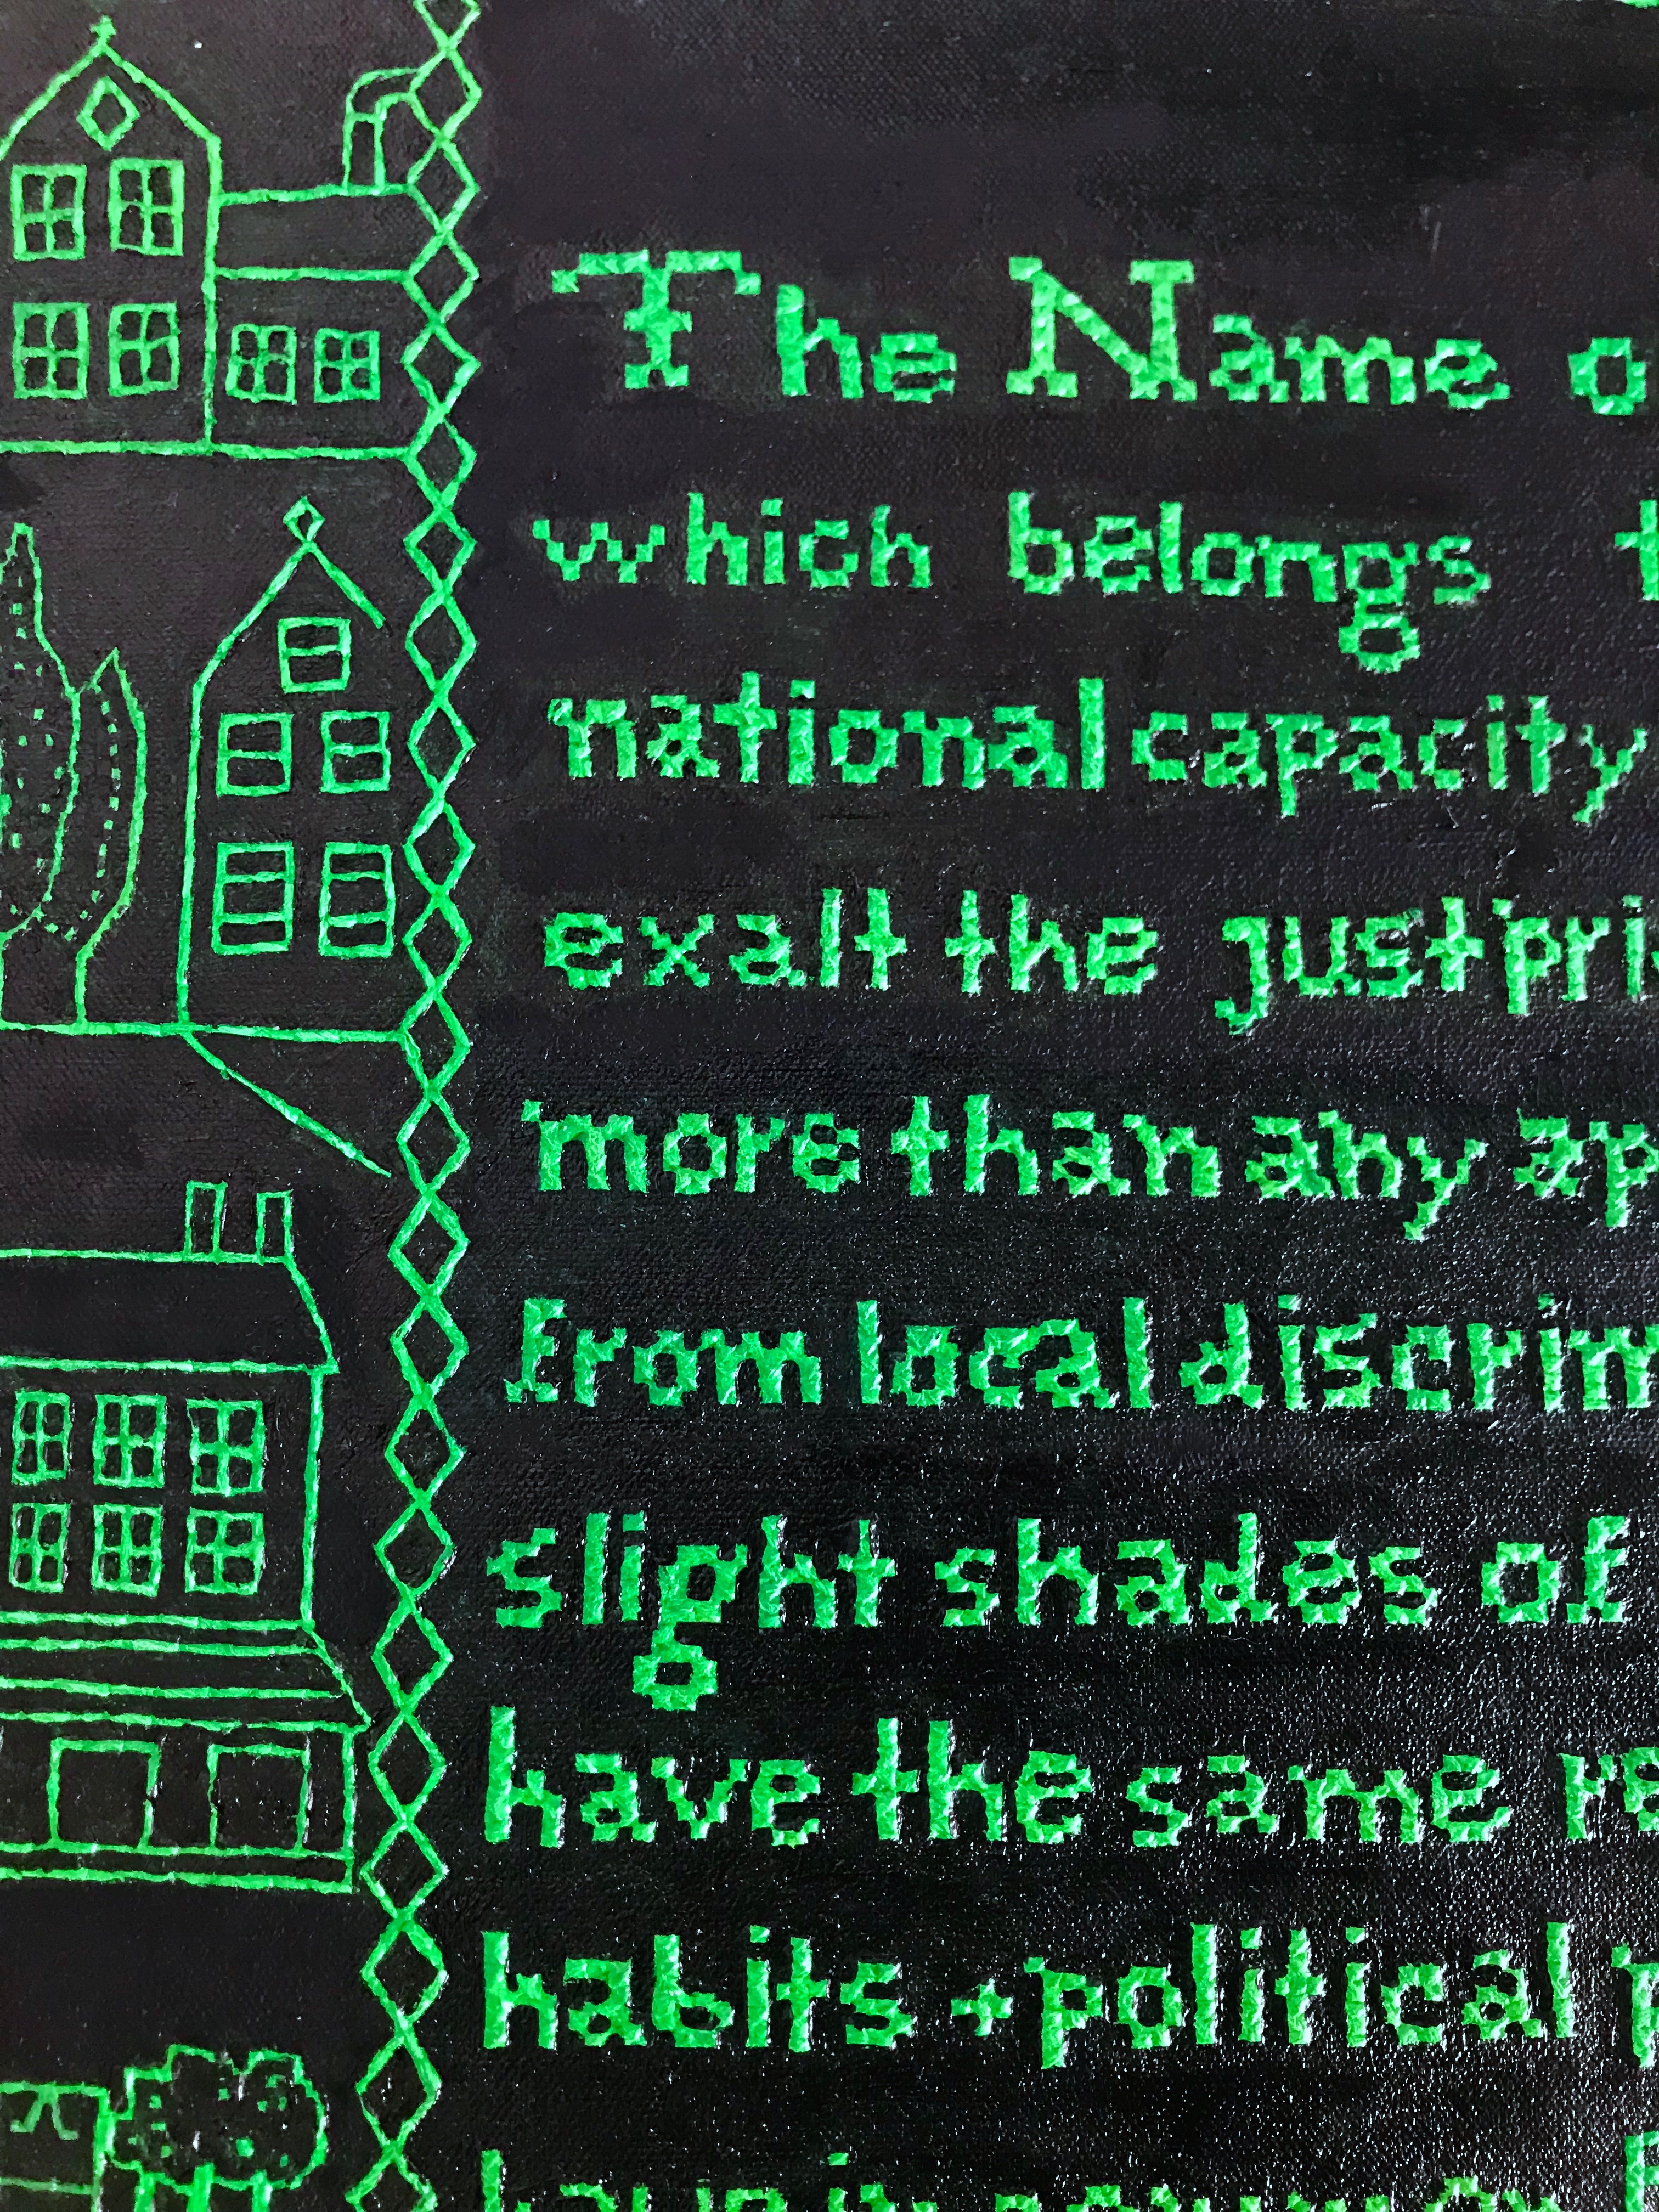 The Name o
which belongs t
national capacity
exalt the just pri
more than any ap
from local discrim
slight shades of
have the same re
habits + political p
have in